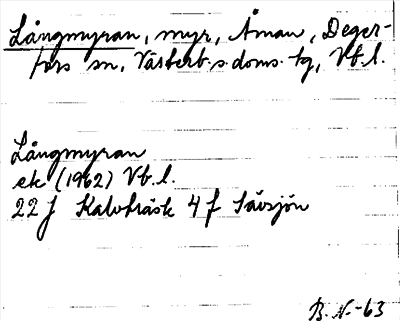 Långmyran, myr, Åman, Deger-
fors sn, Västerb:s doms. tg, Vb.l.
Långmyran
ek (1962) Vb.l.
22 J Kalvträsk 4 f Sävsjön
B. N.-63